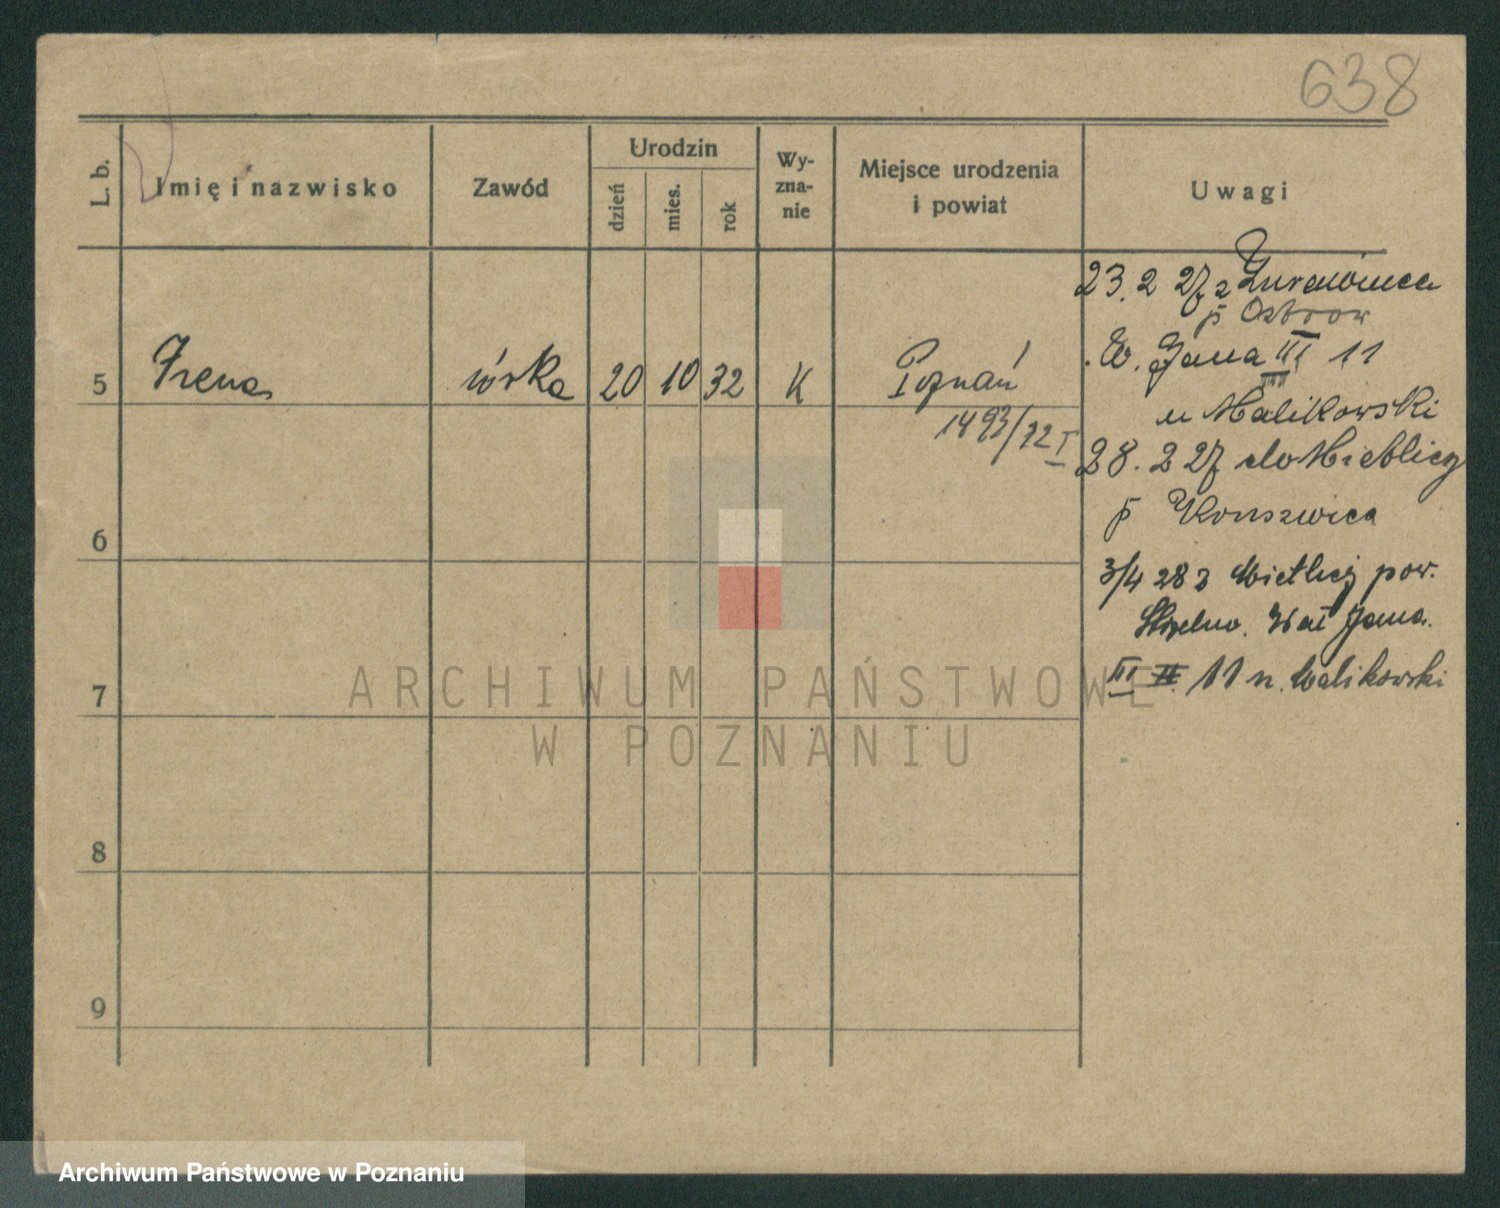 638
L. b.
Imię i nazwisko
Zawód
Urodzin
dzień
mies.
rok
Wy-
zna-
nie
Miejsce urodzenia
i powiat
Uwagi
5 Irena córka 20 10 32 K Poznań
1493/32 I
23. 2 27 z Żurawińca
p Ostrow
W. Jana III 11
u Malikowski
28. 2 27 do
p
3/4 28 z Mietlicy pow.
Strzelno. Wał Jana.
III 11 u. Malikowski
6
7
8
9
ARCHIWUM PAŃSTWOWE
W POZNANIU
Archiwum Państwowe w Poznaniu